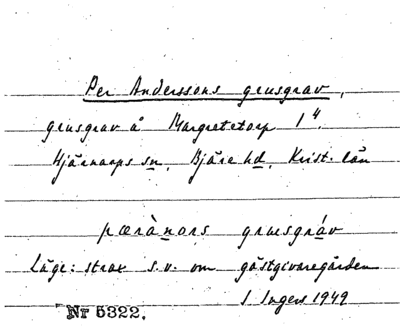 Per Anderssons grusgrav,
grusgrav å Margretetorp 1⁴.
Hjärnarps sn, Bjäre hd, Krist. län
pærànors grusgráv
Läge: strax s.v. om gästgivaregården
J Ingers 1949
Nr 5322.